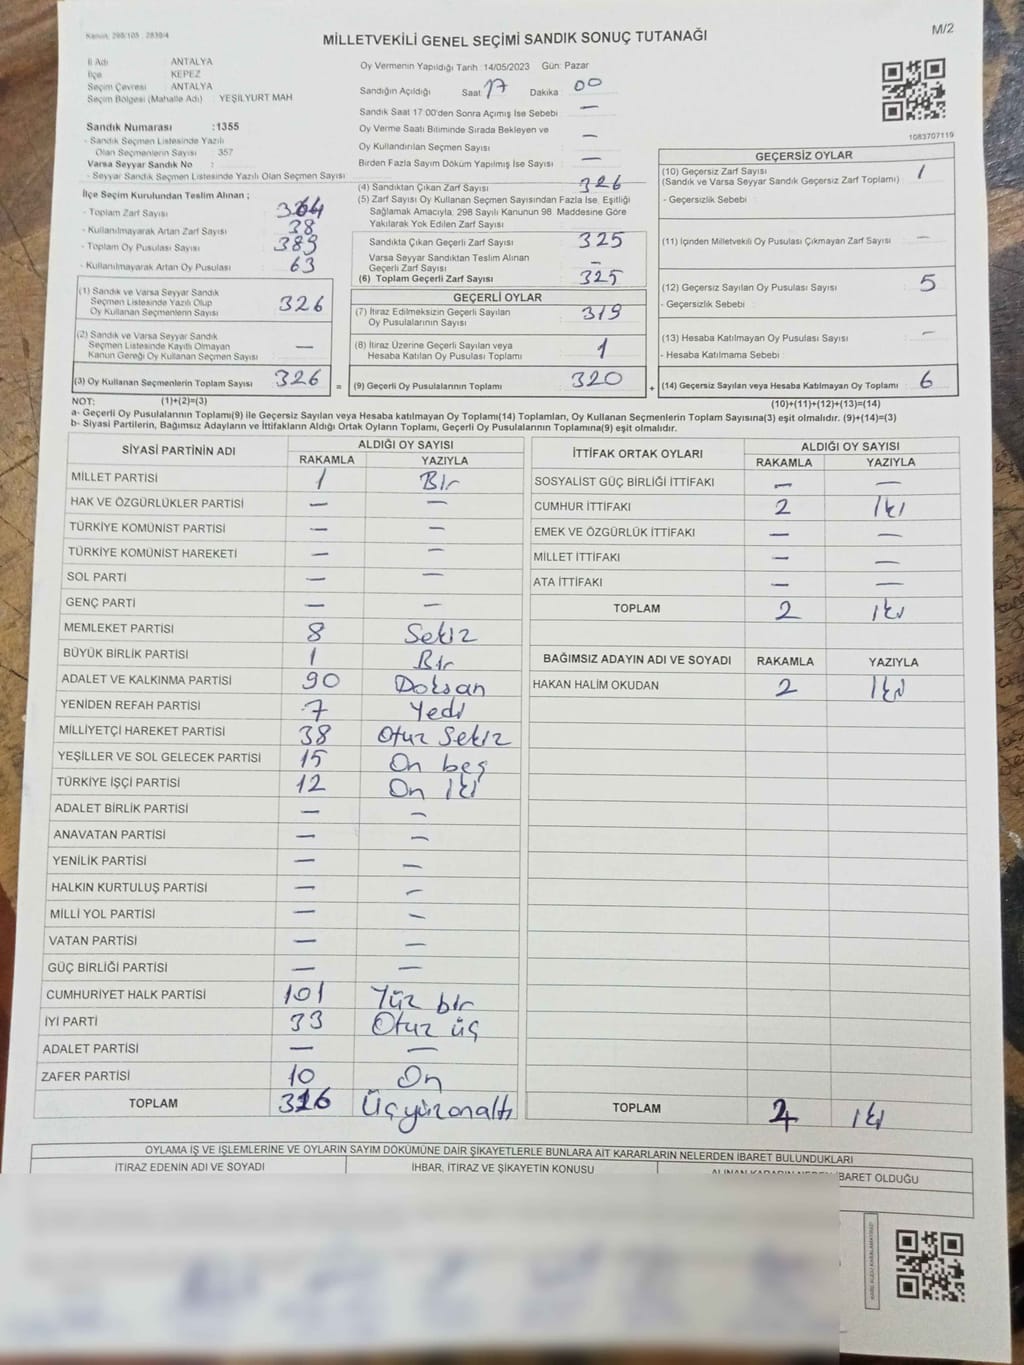 Kanun: 298/105 ; 2839/4
MİLLETVEKİLİ GENEL SEÇİMİ SANDIK SONUÇ TUTANAĞI
M/2
İl Adı : ANTALYA
İlçe : KEPEZ
Seçim Çevresi : ANTALYA
Seçim Bölgesi (Mahalle Adı) : YEŞİLYURT MAH
Sandık Numarası :1355
- Sandık Seçmen Listesinde Yazılı
Olan Seçmenlerin Sayısı : 357
Varsa Seyyar Sandık No :
- Seyyar Sandık Seçmen Listesinde Yazılı Olan Seçmen Sayısı :
İlçe Seçim Kurulundan Teslim Alınan ;
- Toplam Zarf Sayısı : 364
- Kullanılmayarak Artan Zarf Sayısı : 38
- Toplam Oy Pusulası Sayısı : 389
- Kullanılmayarak Artan Oy Pusulası : 63
(1) Sandık ve Varsa Seyyar Sandık
Seçmen Listesinde Yazılı Olup
Oy Kullanan Seçmenlerin Sayısı 326
(2) Sandık ve Varsa Seyyar Sandık
Seçmen Listesinde Kayıtlı Olmayan
Kanun Gereği Oy Kullanan Seçmen Sayısı —
(3) Oy Kullanan Seçmenlerin Toplam Sayısı 326 =
Oy Vermenin Yapıldığı Tarih :14/05/2023 Gün: Pazar
Sandığın Açıldığı Saat : 17 Dakika : 00
Sandık Saat 17:00'den Sonra Açımış İse Sebebi : —
Oy Verme Saati Bitiminde Sırada Bekleyen ve
Oy Kullandırılan Seçmen Sayısı : —
Birden Fazla Sayım Döküm Yapılmış İse Sayısı : —
(4) Sandıktan Çıkan Zarf Sayısı : 326
(5) Zarf Sayısı Oy Kullanan Seçmen Sayısından Fazla İse, Eşitliği
Sağlamak Amacıyla, 298 Sayılı Kanunun 98. Maddesine Göre
Yakılarak Yok Edilen Zarf Sayısı :
Sandıkta Çıkan Geçerli Zarf Sayısı : 325
Varsa Seyyar Sandıktan Teslim Alınan
Geçerli Zarf Sayısı : —
(6) Toplam Geçerli Zarf Sayısı : 325
GEÇERLİ OYLAR
(7) İtiraz Edilmeksizin Geçerli Sayılan
Oy Pusulalarının Sayısı : 319
(8) İtiraz Üzerine Geçerli Sayılan veya
Hesaba Katılan Oy Pusulası Toplamı : 1
(9) Geçerli Oy Pusulalarının Toplamı : 320 +
1083707119
GEÇERSİZ OYLAR
(10) Geçersiz Zarf Sayısı : 1
(Sandık ve Varsa Seyyar Sandık Geçersiz Zarf Toplamı)
- Geçersizlik Sebebi :
(11) İçinden Milletvekili Oy Pusulası Çıkmayan Zarf Sayısı : —
(12) Geçersiz Sayılan Oy Pusulası Sayısı : 5
- Geçersizlik Sebebi :
(13) Hesaba Katılmayan Oy Pusulası Sayısı : —
- Hesaba Katılmama Sebebi :
(14) Geçersiz Sayılan veya Hesaba Katılmayan Oy Toplamı : 6
NOT: (1)+(2)=(3) (10)+(11)+(12)+(13)=(14)
a- Geçerli Oy Pusulalarının Toplamı(9) ile Geçersiz Sayılan veya Hesaba katılmayan Oy Toplamı(14) Toplamları, Oy Kullanan Seçmenlerin Toplam Sayısına(3) eşit olmalıdır. (9)+(14)=(3)
b- Siyasi Partilerin, Bağımsız Adayların ve İttifakların Aldığı Ortak Oyların Toplamı, Geçerli Oy Pusulalarının Toplamına(9) eşit olmalıdır.
SİYASİ PARTİNİN ADI ALDIĞI OY SAYISI
RAKAMLA YAZIYLA
MİLLET PARTİSİ 1 Bir
HAK VE ÖZGÜRLÜKLER PARTİSİ — —
TÜRKİYE KOMÜNİST PARTİSİ — —
TÜRKİYE KOMÜNİST HAREKETİ — —
SOL PARTİ — —
GENÇ PARTİ — —
MEMLEKET PARTİSİ 8 Sekiz
BÜYÜK BİRLİK PARTİSİ 1 Bir
ADALET VE KALKINMA PARTİSİ 90 Doksan
YENİDEN REFAH PARTİSİ 7 Yedi
MİLLİYETÇİ HAREKET PARTİSİ 38 Otuz Sekiz
YEŞİLLER VE SOL GELECEK PARTİSİ 15 On beş
TÜRKİYE İŞÇİ PARTİSİ 12 On iki
ADALET BİRLİK PARTİSİ — —
ANAVATAN PARTİSİ — —
YENİLİK PARTİSİ — —
HALKIN KURTULUŞ PARTİSİ — —
MİLLİ YOL PARTİSİ — —
VATAN PARTİSİ — —
GÜÇ BİRLİĞİ PARTİSİ — —
CUMHURİYET HALK PARTİSİ 101 Yüz bir
İYİ PARTİ 33 Otuz üç
ADALET PARTİSİ — —
ZAFER PARTİSİ 10 On
TOPLAM 316 Üçyüzonaltı
İTTİFAK ORTAK OYLARI ALDIĞI OY SAYISI
RAKAMLA YAZIYLA
SOSYALİST GÜÇ BİRLİĞİ İTTİFAKI — —
CUMHUR İTTİFAKI 2 İki
EMEK VE ÖZGÜRLÜK İTTİFAKI — —
MİLLET İTTİFAKI — —
ATA İTTİFAKI — —
TOPLAM 2 İki
BAĞIMSIZ ADAYIN ADI VE SOYADI RAKAMLA YAZIYLA
HAKAN HALİM OKUDAN 2 İki
TOPLAM 2 İki
OYLAMA İŞ VE İŞLEMLERİNE VE OYLARIN SAYIM DÖKÜMÜNE DAİR ŞİKAYETLERLE BUNLARA AİT KARARLARIN NELERDEN İBARET BULUNDUKLARI
İTİRAZ EDENİN ADI VE SOYADI İHBAR, İTİRAZ VE ŞİKAYETİN KONUSU ALINAN KARARIN NEDEN İBARET OLDUĞU